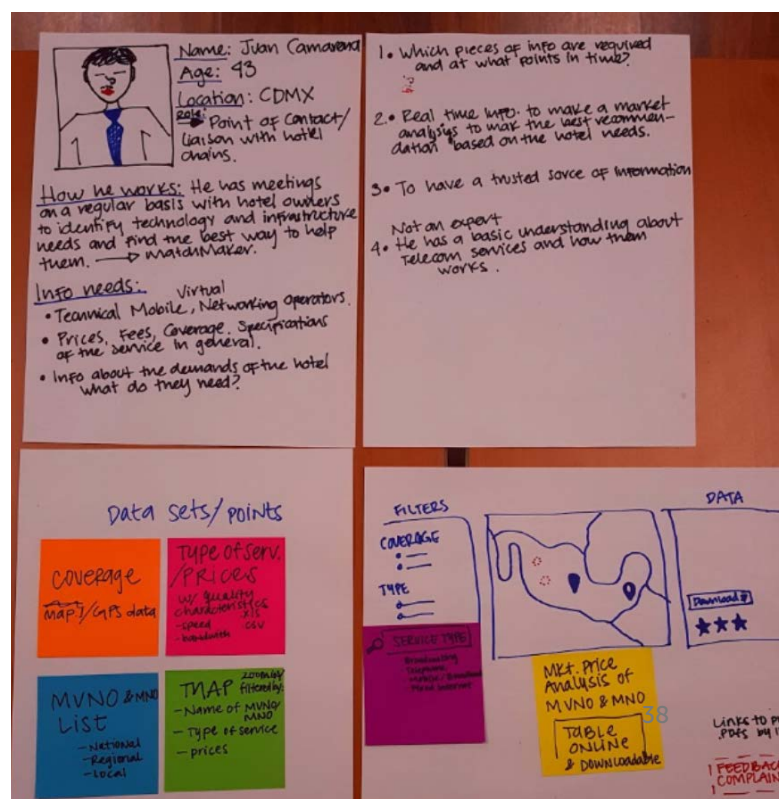 Name: Juan Camarena
Age: 43
Location: CDMX
Role:
→ Point of Contact/
Liaison with hotel
chains.
How he works: He has meetings
on a regular basis with hotel owners
to identify technology and infrastructure
needs and find the best way to help
them. → MatchMaker.
Info needs:
Virtual
• Technical Mobile, Networking operators.
• Prices, Fees, Coverage. Specifications
of the service in general.
• Info about the demands of the hotel
what do they need?
1. Which pieces of info are required
and at what points in time?
2. Real time info. to make a market
analysys to mak the best recommen-
dation based on the hotel needs.
3. To have a trusted sorce of information
Not an expert
4. He has a basic understanding about
Telecom services and how them
works.
Data sets/points
COVERAGE
MAPS/GPS data
Type of serv.
/PRICES
w/ quality
characteristics
-speed .XLS
-bandwidth .CSV
MVNO & MNO
List
-National
-Regional
-Local
MAP
filtered by:
-Name of MVNO/
MNO
-Type of service
-prices
FILTERS
COVERAGE
TYPE
SERVICE TYPE
DATA
Download
Mkt. Price
Analysis of
MVNO & MNO
TABLE
ONLINE
& DOWNLOADABLE
38
Links to
PDFs by
FEEDBACK
COMPLAIN